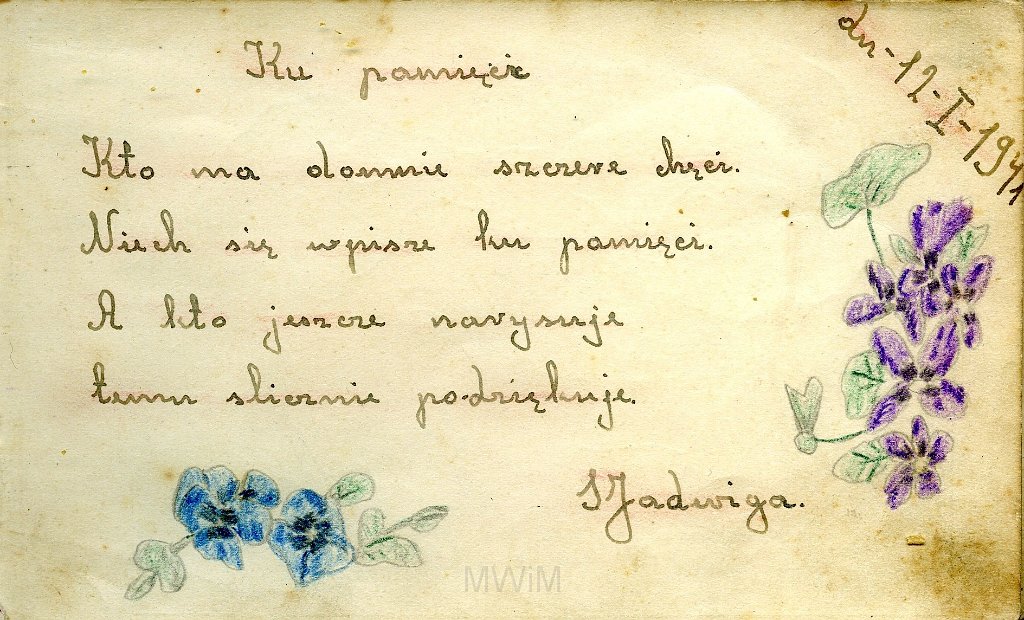 dn-12-I-1941
Ku pamięci
Kto ma domnie szczere chęci.
Niech się wpisze ku pamięci.
A kto jeszcze narysuje
temu slicznie podziękuje.
Jadwiga.
MWiM